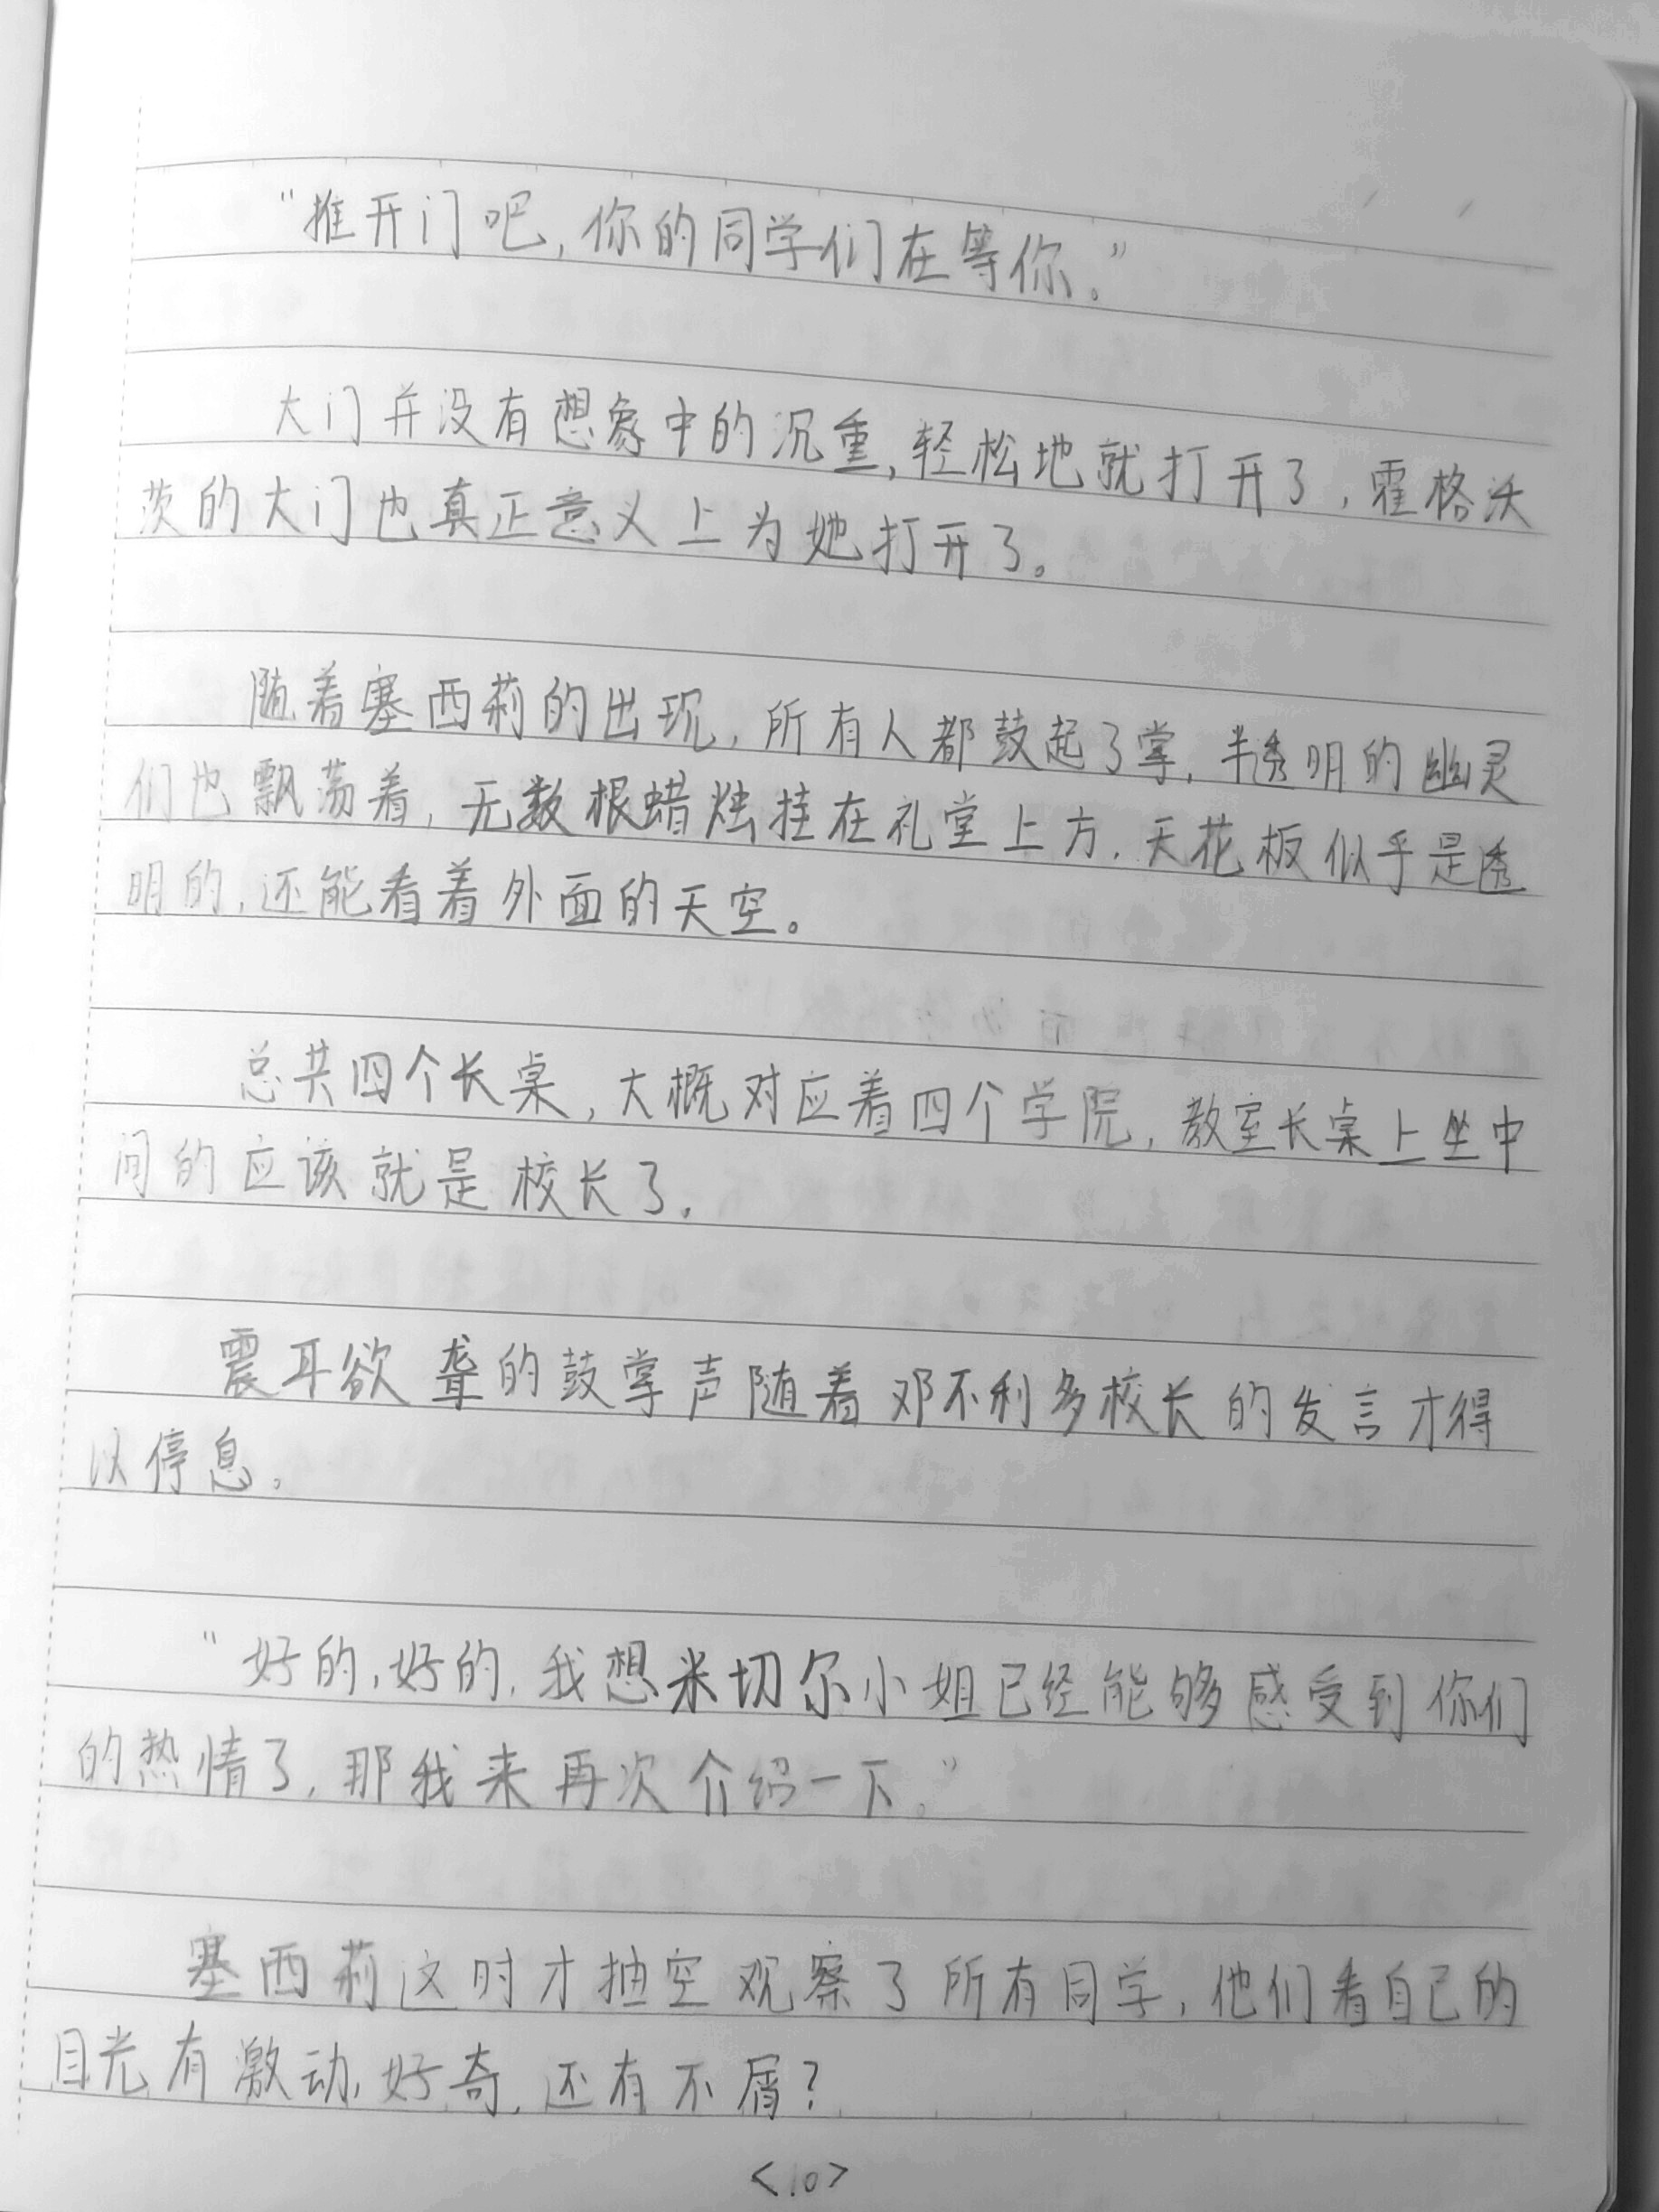 “推开门吧，你的同学们在等你。”
大门并没有想象中的沉重，轻松地就打开了，霍格沃
茨的大门也真正意义上为她打开了。
随着塞西莉的出现，所有人都鼓起了掌，半透明的幽灵
们也飘荡着，无数根蜡烛挂在礼堂上方，天花板似乎是透
明的，还能看着外面的天空。
总共四个长桌，大概对应着四个学院，教室长桌上坐中
间的应该就是校长了。
震耳欲聋的鼓掌声随着邓不利多校长的发言才得
以停息。
“好的，好的，我想米切尔小姐已经能够感受到你们
的热情了，那我来再次介绍一下。”
塞西莉这时才抽空观察了所有同学，他们看自己的
目光有激动，好奇，还有不屑？
<10>